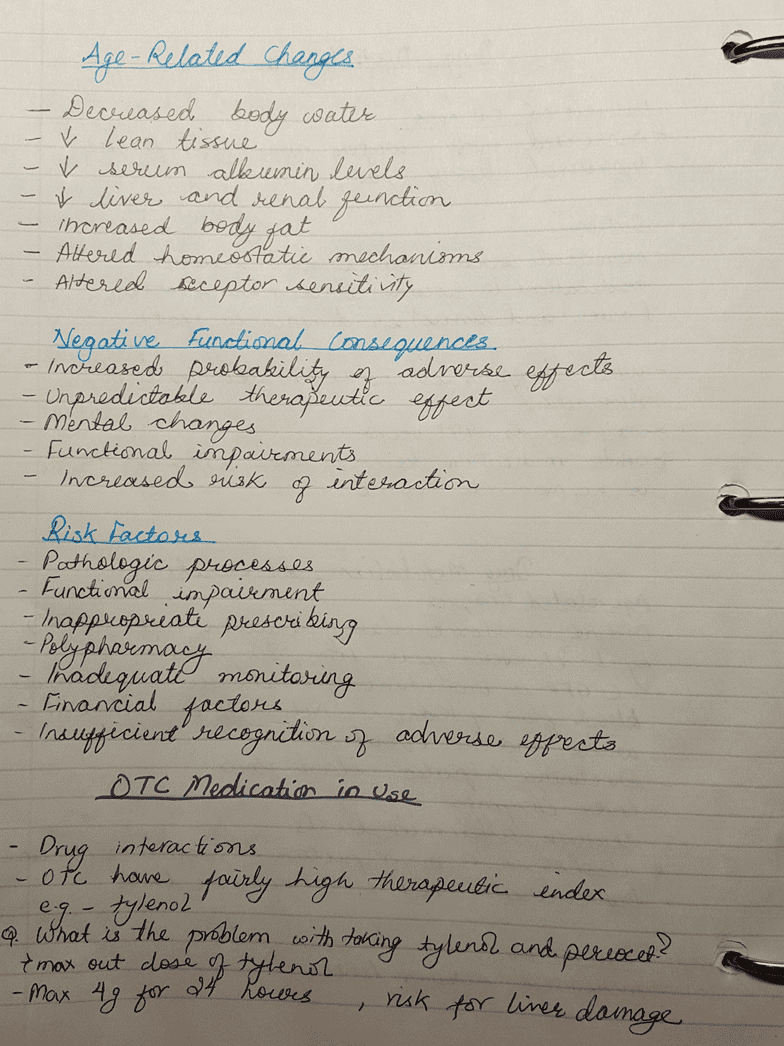 Age-Related Changes
- Decreased body water
- ↓ lean tissue
- ↓ serum albumin levels
- ↓ liver and renal function
- increased body fat
- Altered homeostatic mechanisms
- Altered receptor sensitivity
Negative Functional Consequences
- Increased probability of adverse effects
- Unpredictable therapeutic effect
- Mental changes
- Functional impairments
- Increased risk of interaction
Risk Factors
- Pathologic processes
- Functional impairment
- Inappropriate prescribing
- Polypharmacy
- Inadequate monitoring
- Financial factors
- Insufficient recognition of adverse effects
OTC Medication in Use
- Drug interactions
- OTC have fairly high therapeutic index
e.g. - tylenol
Q. What is the problem with taking tylenol and percocet?
max out dose of tylenol
- Max 4g for 24 hours , risk for liver damage